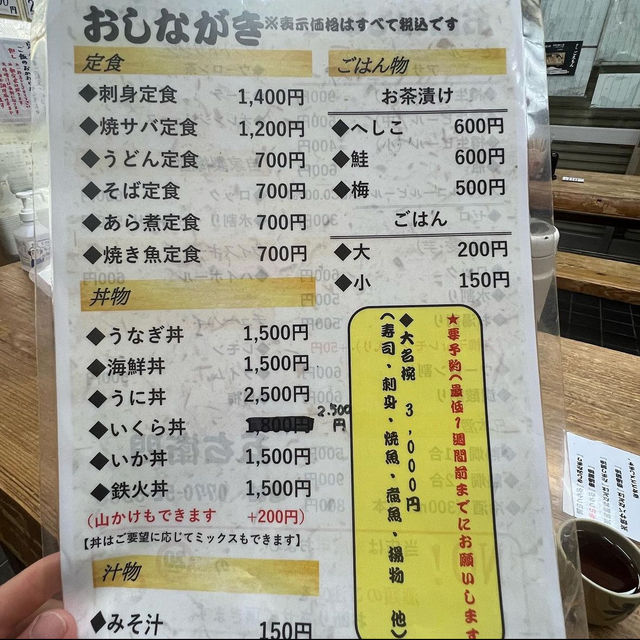 おしながき※表示価格はすべて税込です
定食
◆刺身定食 1,400円
◆焼サバ定食 1,200円
◆うどん定食 700円
◆そば定食 700円
◆あら煮定食 700円
◆焼き魚定食 700円
丼物
◆うなぎ丼 1,500円
◆海鮮丼 1,500円
◆うに丼 2,500円
◆いくら丼 1,800円 2.500円
◆いか丼 1,500円
◆鉄火丼 1,500円
(山かけもできます +200円)
【丼はご要望に応じてミックスもできます】
汁物
◆みそ汁 150円
ごはん物
お茶漬け
◆へしこ 600円
◆鮭 600円
◆梅 500円
ごはん
◆大 200円
◆小 150円
★要予約(最低1週間前までにお願いします
◆大名椀 3,000円
(寿司・刺身・焼魚・煮魚・揚物 他)